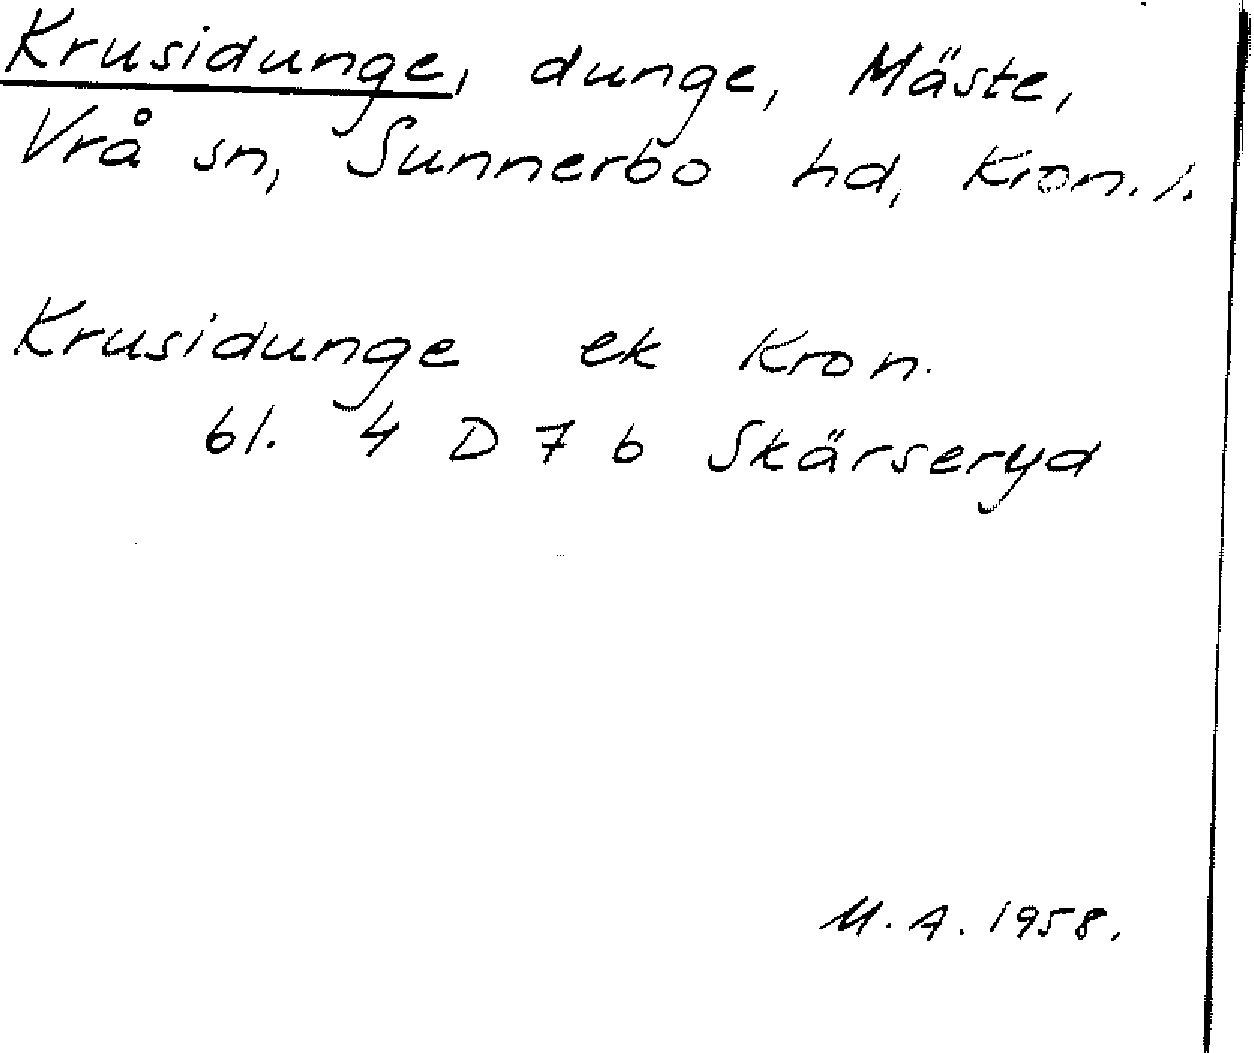 Krusidunge, dunge, Mäste,
Vrå sn, Sunnerbo hd, Kron. l.
Krusidunge ek Kron.
bl. 4 D 7 b Skärseryd
M. A. 1958.